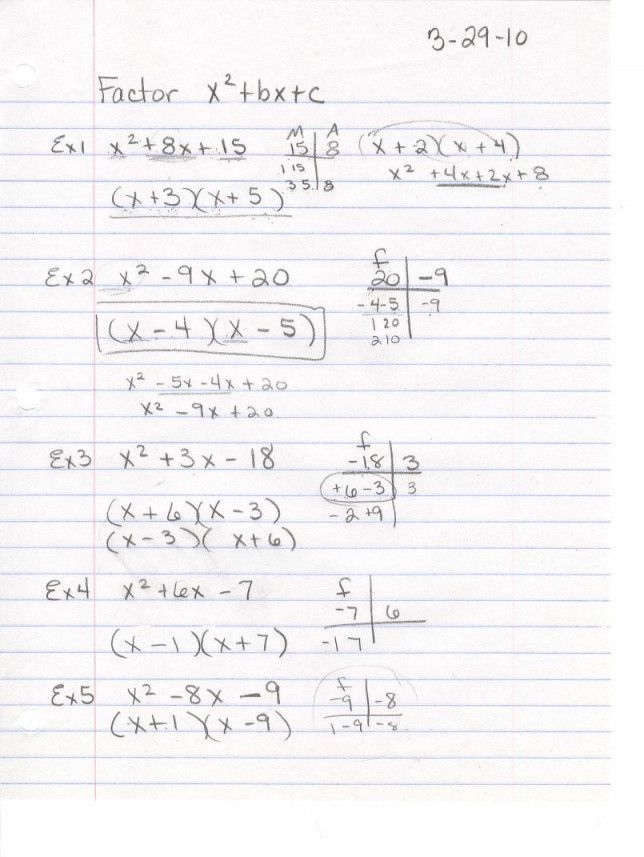 3-29-10
Factor x²+bx+c
Ex1 x²+8x+15
M A
15 8
1 15
3 5 8
(x+2)(x+4)
x² +4x+2x+8
(x+3)(x+5)
Ex2 x²-9x+20
f
20 -9
-4-5 -9
1 20
2 10
(x-4)(x-5)
x²-5x-4x+20
x²-9x+20
Ex3 x²+3x-18
f
-18 3
+6-3 3
-2+9
(x+6)(x-3)
(x-3)(x+6)
Ex4 x²+6x-7
f
-7 6
-1 7
(x-1)(x+7)
Ex5 x²-8x-9
f
-9 -8
1-9 -8
(x+1)(x-9)